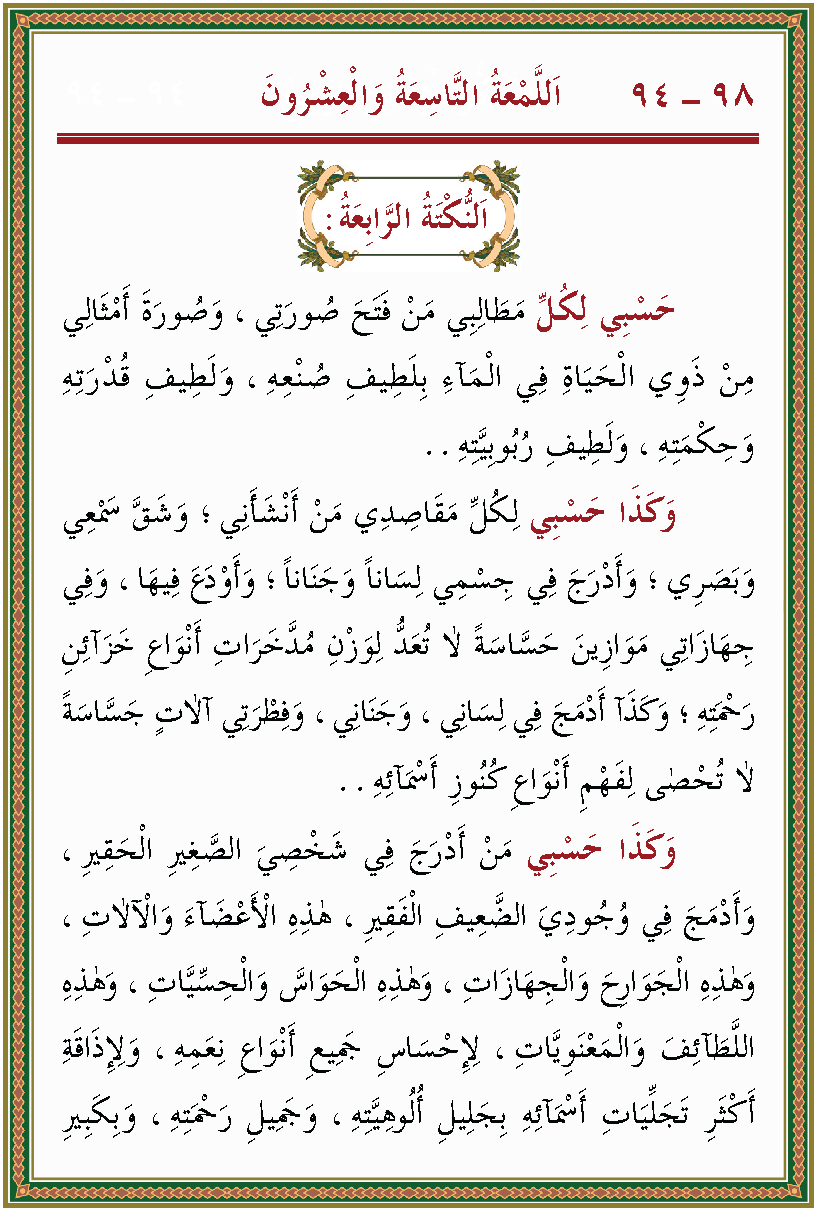 ٩٨ – ٩٤ اَللَّمْعَةُ التَّاسِعَةُ وَالْعِشْرُونَ ٩٤ – ٩٤
اَلنُّكْتَةُ الرَّابِعَةُ :
حَسْبِي لِكُلِّ مَطَالِبِي مَنْ فَتَحَ صُورَتِي ، وَصُورَةَ أَمْثَالِي
مِنْ ذَوِي الْحَيَاةِ فِي الْمَآءِ بِلَطِيفِ صُنْعِهِ ، وَلَطِيفِ قُدْرَتِهِ
وَحِكْمَتِهِ ، وَلَطِيفِ رُبُوبِيَّتِهِ . .
وَكَذَا حَسْبِي لِكُلِّ مَقَاصِدِي مَنْ أَنْشَأَنِي ؛ وَشَقَّ سَمْعِي
وَبَصَرِي ؛ وَأَدْرَجَ فِي جِسْمِي لِسَاناً وَجَنَاناً ؛ وَأَوْدَعَ فِيهَا ، وَفِي
جِهَازَاتِي مَوَازِينَ حَسَّاسَةً لاٰ تُعَدُّ لِوَزْنِ مُدَّخَرَاتِ أَنْوَاعِ خَزَآئِنِ
رَحْمَتِهِ ؛ وَكَذَآ أَدْمَجَ فِي لِسَانِي ، وَجَنَانِي ، وَفِطْرَتِي آلاٰتٍ جَسَّاسَةً
لاٰ تُحْصٰى لِفَهْمِ أَنْوَاعِ كُنُوزِ أَسْمَآئِهِ . .
وَكَذَا حَسْبِي مَنْ أَدْرَجَ فِي شَخْصِيَ الصَّغِيرِ الْحَقِيرِ ،
وَأَدْمَجَ فِي وُجُودِيَ الضَّعِيفِ الْفَقِيرِ ، هٰذِهِ الْأَعْضَآءَ وَالْآلاٰتِ ،
وَهٰذِهِ الْجَوَارِحَ وَالْجِهَازَاتِ ، وَهٰذِهِ الْحَوَاسَّ وَالْحِسِّيَّاتِ ، وَهٰذِهِ
اللَّطَآئِفَ وَالْمَعْنَوِيَّاتِ ، لِإِحْسَاسِ جَمِيعِ أَنْوَاعِ نِعَمِهِ ، وَلِإِذَاقَةِ
أَكْثَرِ تَجَلِّيَاتِ أَسْمَآئِهِ بِجَلِيلِ أُلُوهِيَّتِهِ ، وَجَمِيلِ رَحْمَتِهِ ، وَبِكَبِيرِ